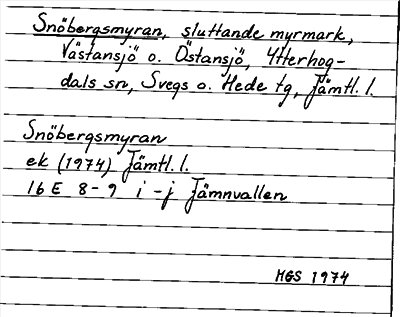 Snöbergsmyran, sluttande myrmark,
Västansjö o. Östansjö, Ytterhog-
dals sn, Svegs o. Hede tg, Jämtl. l.
Snöbergsmyran
ek (1974) Jämtl. l.
16 E 8-9 i-j Jämnvallen
MGS 1974